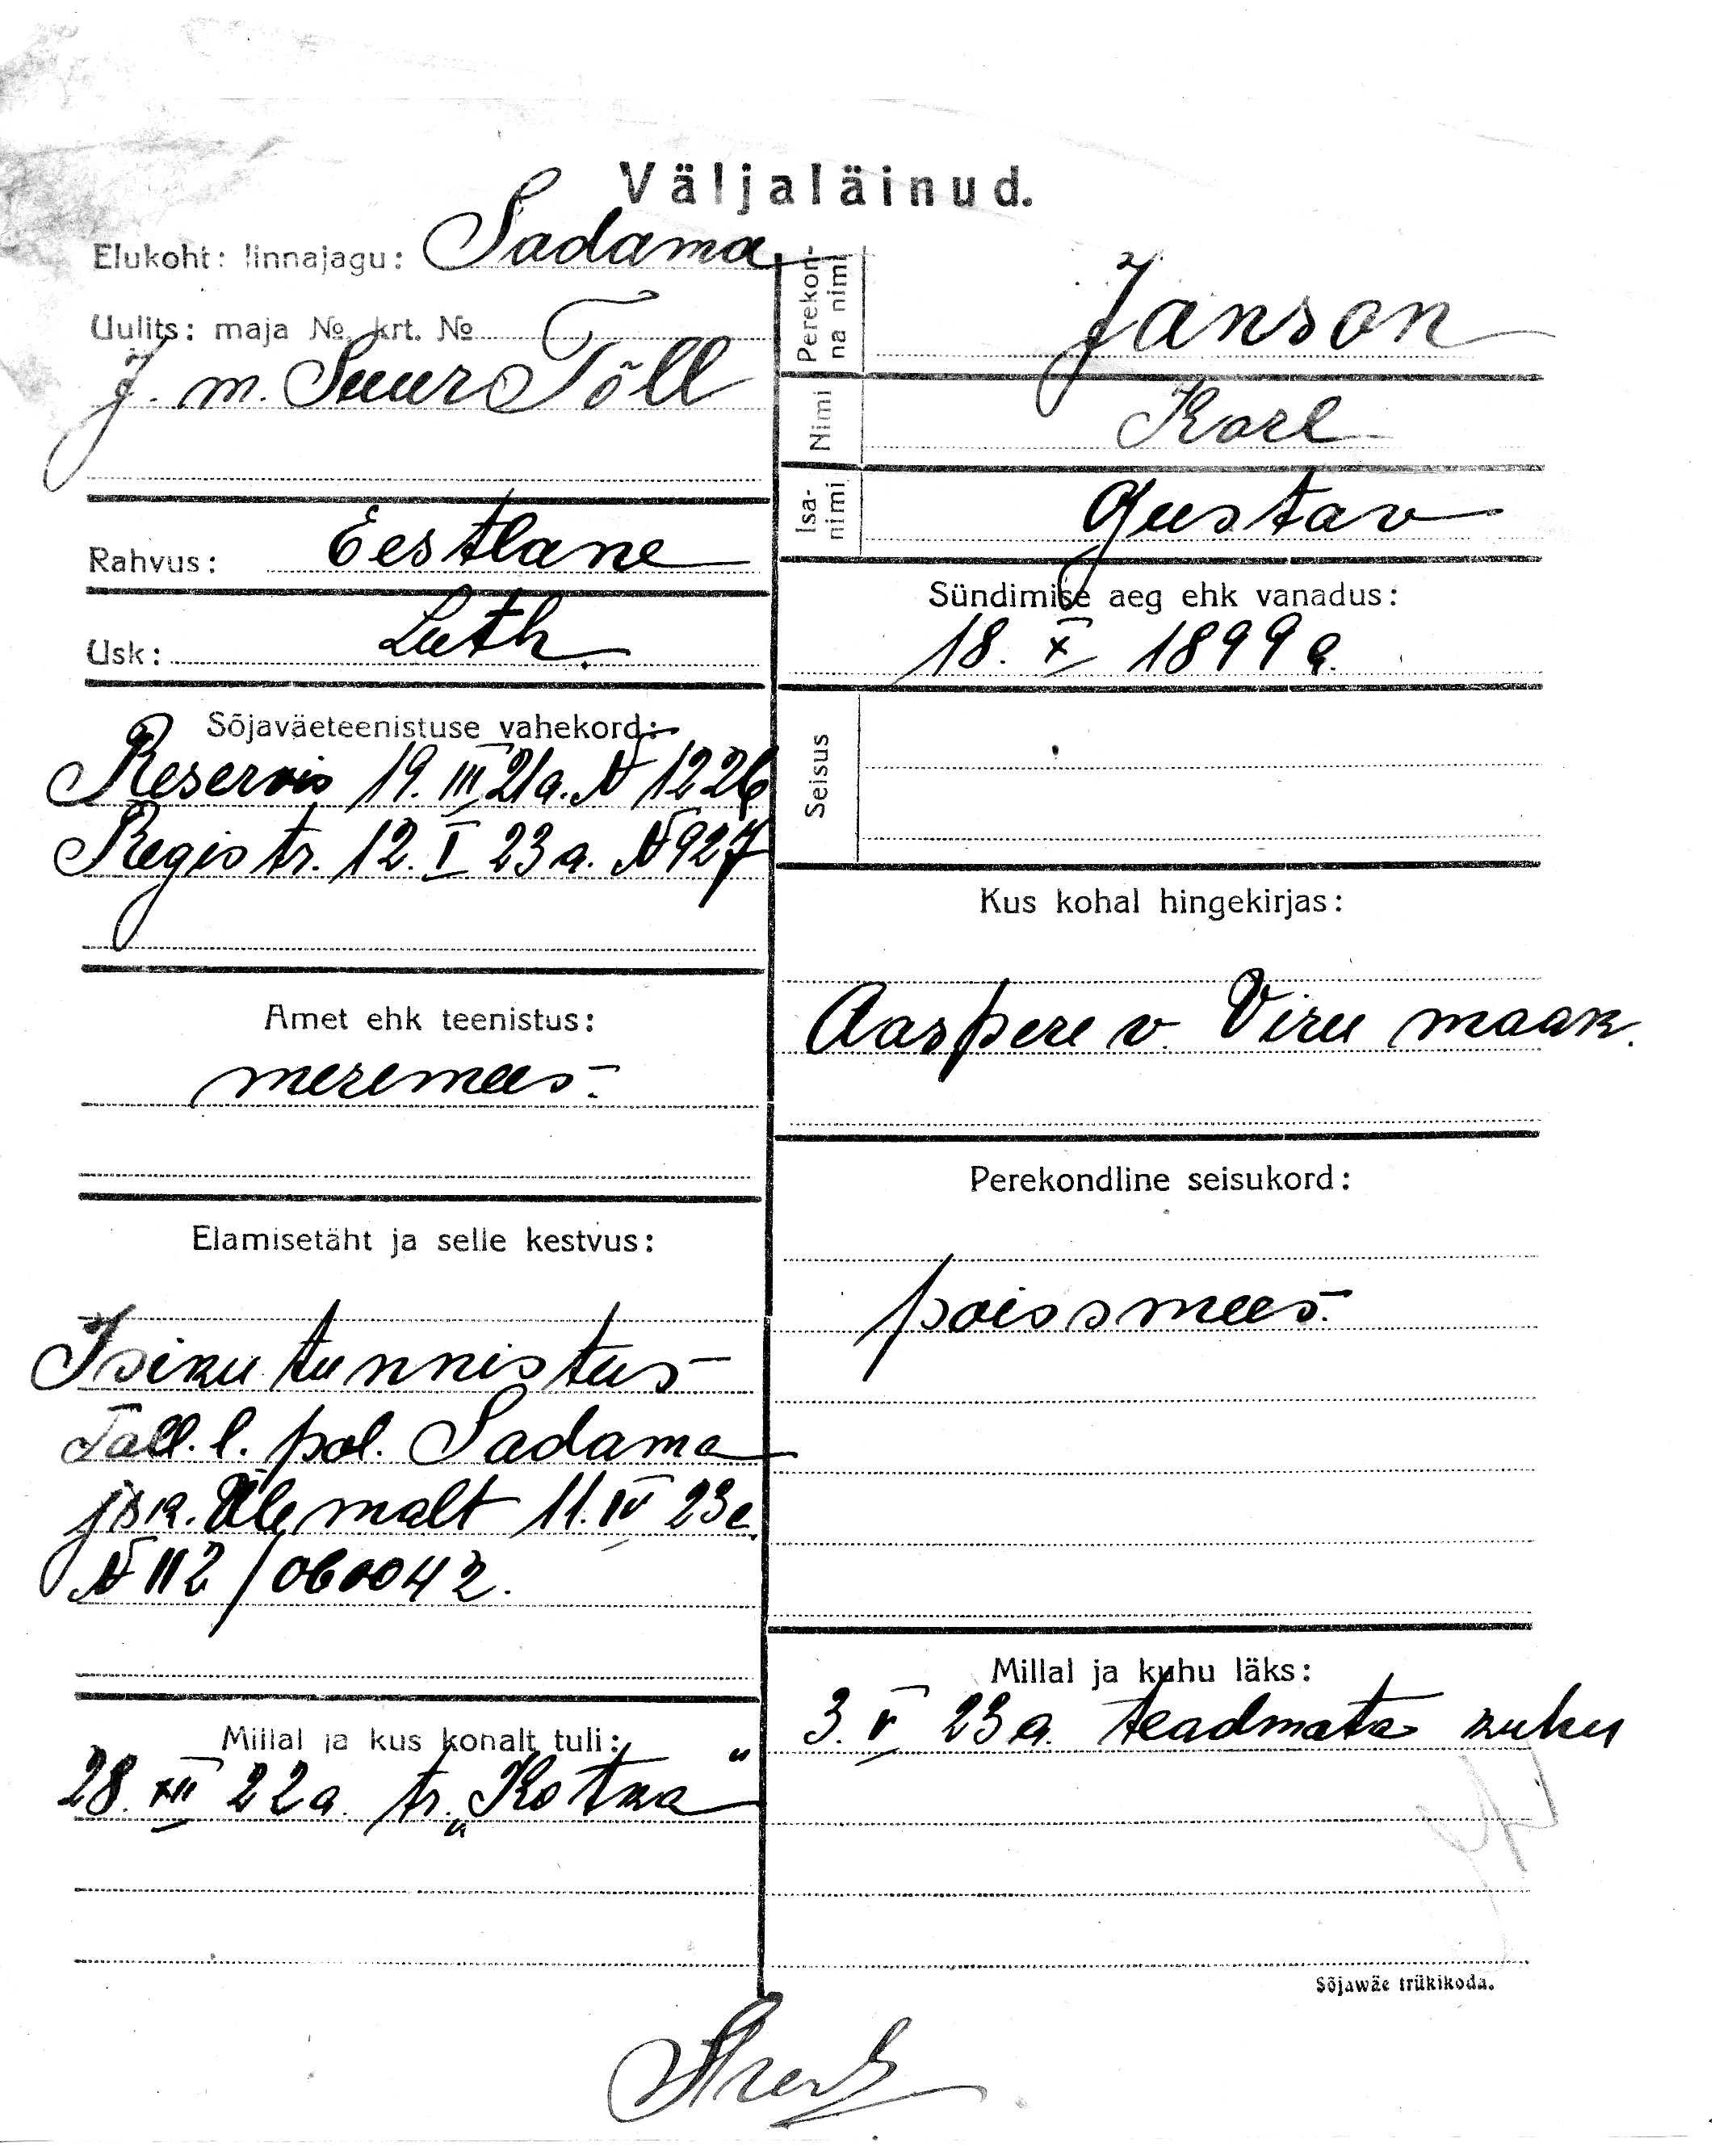 Väljaläinud.
Elukoht: linnajagu: Sadama
Uulits: maja № krt. №
J. m. Suur Tõll
Rahvus: Eestlane
Usk: Luth.
Sõjaväeteenistuse vahekord:
Reservis 19. III 21a. № 1226
Registr. 12. I 23 a. № 927
Amet ehk teenistus:
meremees.
Elamisetäht ja selle kestvus:
Isiku tunnistus
Tall. l. pol. Sadama
jsk. Ülemalt 11. IV 23a.
№ 112 / 060042.
Millal ja kus kohalt tuli:
28. XII 22a. tr. „Kotka"
Perekon-
na nimi
Janson
Nimi
Karl
Isa-
nimi
Gustav
Sündimise aeg ehk vanadus:
18. X 1899 a.
Seisus
Kus kohal hingekirjas:
Aaspere v. Viru maak.
Perekondline seisukord:
poissmees.
Millal ja kuhu läks:
3. V 23 a. teadmata kuhu
Sõjawäe trükikoda.